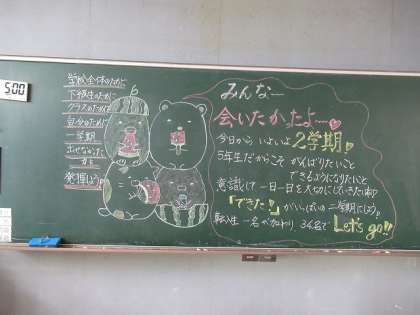 5:00
学校全体のために
下級生のために
クラスのために
自分のために
一学期
出せなかった
力
発揮しよう!
みんなー
会いたかったよー
今日から いよいよ 2学期
5年生だからこそ がんばりたいこと
できるようになりたいこと
意識して 一日一日を大切にしていきたい
「できた!」がいっぱいの 二学期にしよう。
転入生 一名が加わり、34名で Let's go!!